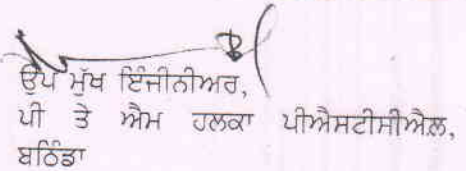 ਉਪ ਮੁੱਖ ਇੰਜੀਨੀਅਰ,
ਪੀ ਤੇ ਐਮ ਹਲਕਾ ਪੀਐਸਟੀਸੀਐਲ,
ਬਠਿੰਡਾ